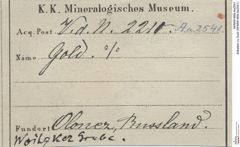 K. K. Mineralogisches Museum.
Acq. Post V. d. N. 2210. Aa.2541.
Name Gold. %
Fundort Olonez, Russland.
Woitzker Grube.